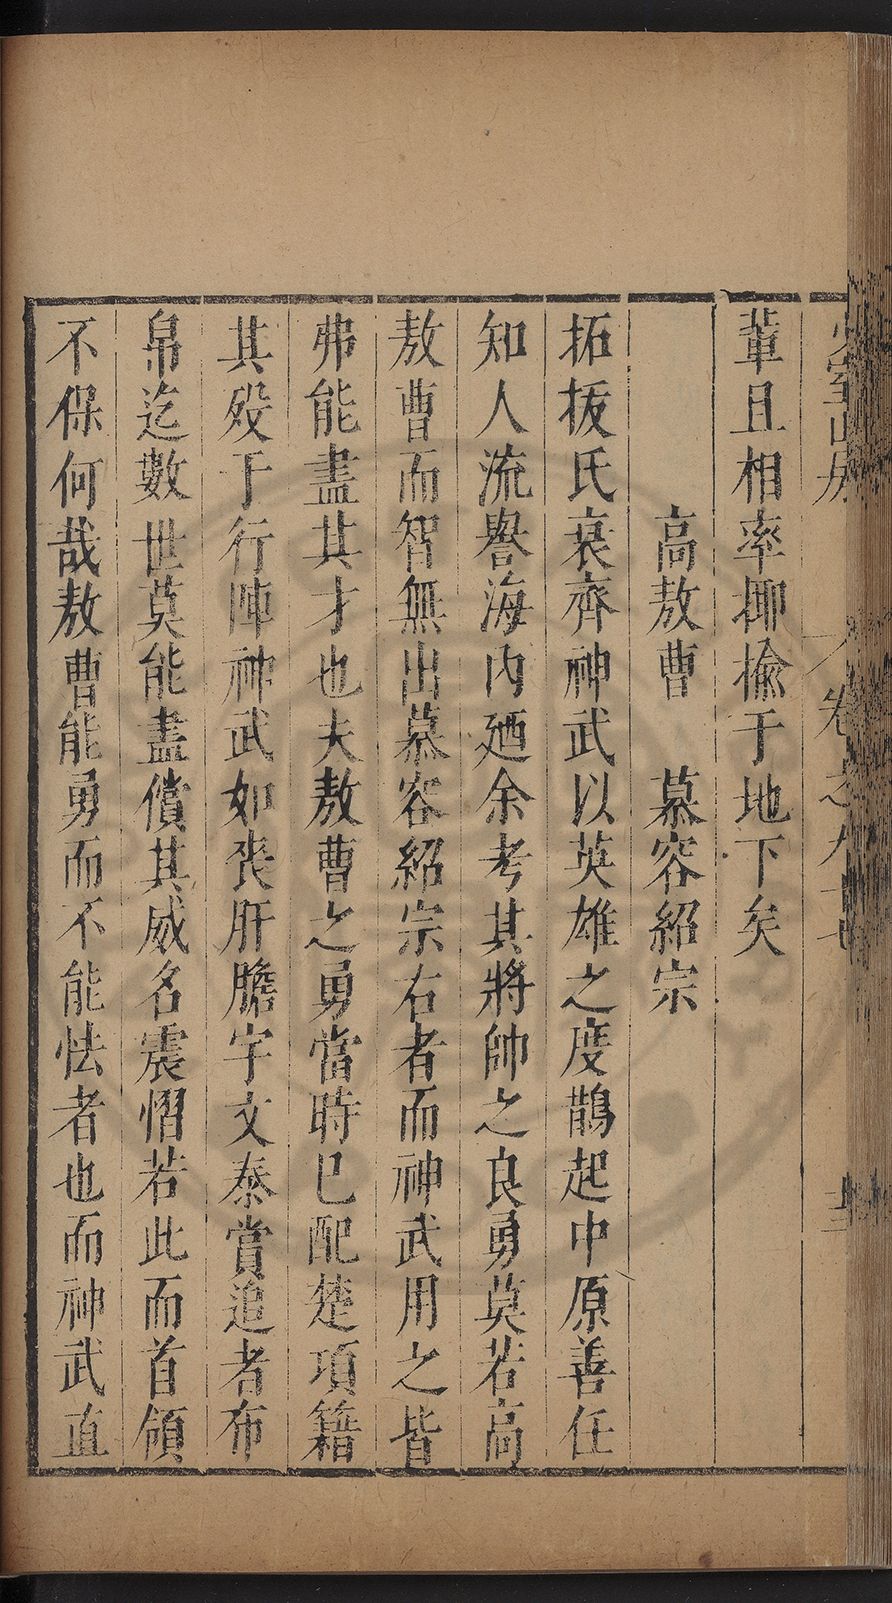 少室山房
卷之九十七
輩且相率揶揄于地下矣
高敖曹 慕容紹宗
拓拔氏衰齊神武以英雄之度鵲起中原善任
知人流譽海内廼余考其將帥之良勇莫若高
敖曹而智無出慕容紹宗右者而神武用之皆
弗能盡其才也夫敖曹之勇當時已配楚項籍
其殁于行陣神武如喪肝膽宇文泰賞追者布
帛迄數世莫能盡償其威名震慴若此而首領
不保何哉敖曹能勇而不能怯者也而神武直